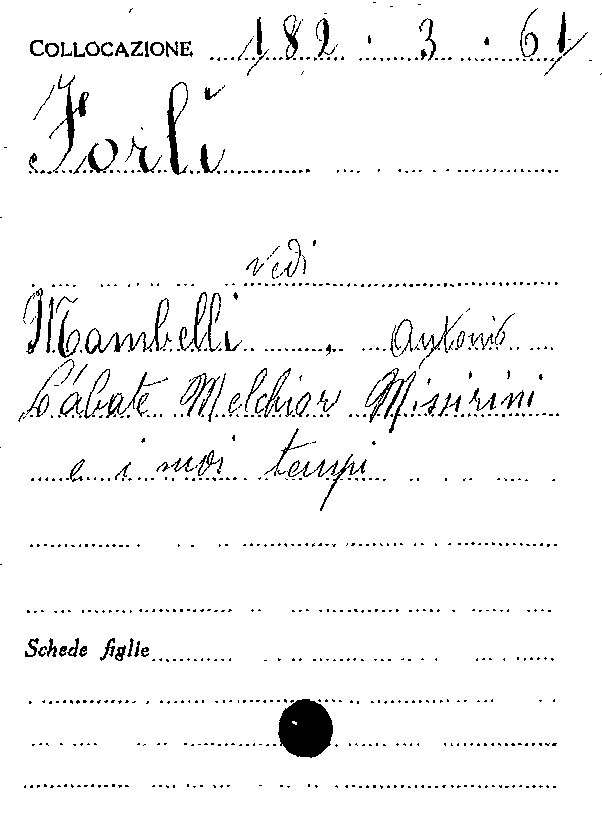 COLLOCAZIONE 182 . 3 . 61
Forlì
vedi
Mambelli , Antonio
L'abate Melchior Missirini
e i suoi tempi
Schede figlie